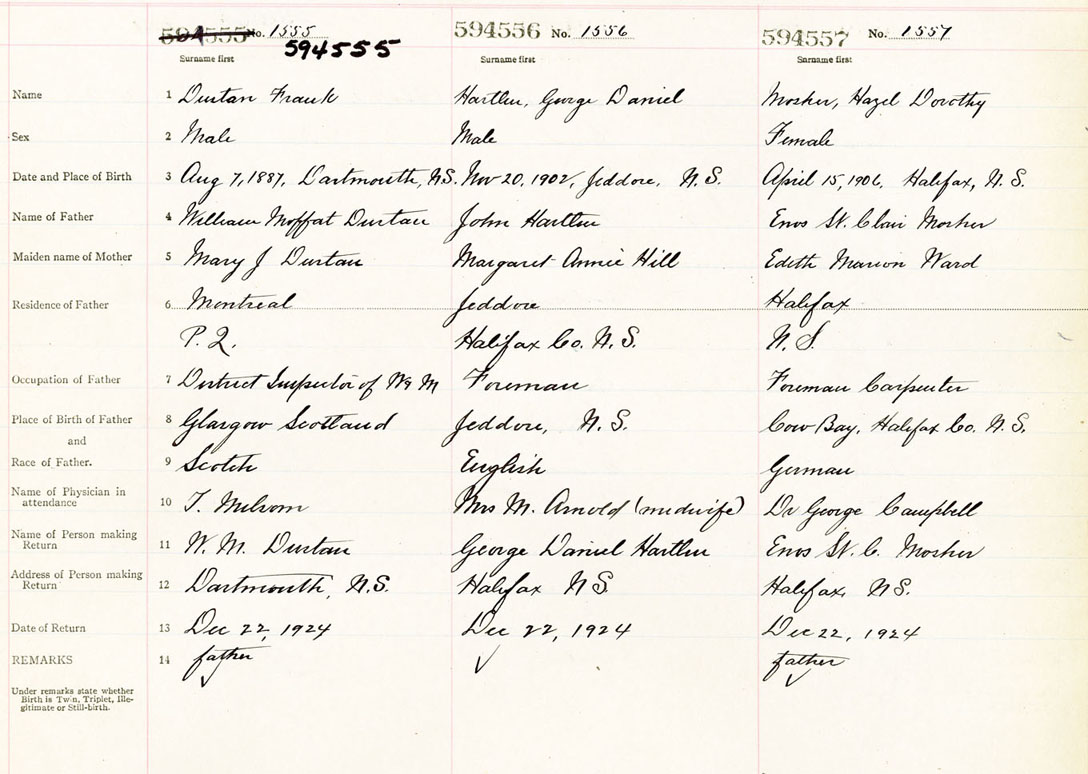 594555 No. 1555 594556 No. 1556 594557 No. 1557
594555
Surname first Surname first Surname first
Name 1 Dustan Frank Hartlin, George Daniel Mosher, Hazel Dorothy
Sex 2 Male Male Female
Date and Place of Birth 3 Aug 7, 1887, Dartmouth, N.S. Nov 20, 1902, Jeddore, N.S. April 15, 1906, Halifax, N.S.
Name of Father 4 William Moffat Dustan John Hartlin Enos St. Clair Mosher
Maiden name of Mother 5 Mary J Dustan Margaret Annie Hill Edith Marion Ward
Residence of Father 6 Montreal Jeddore Halifax
P.Q. Halifax Co. N.S. N.S.
Occupation of Father 7 District Inspector of W & M Foreman Foreman Carpenter
Place of Birth of Father 8 Glasgow Scotland Jeddore, N.S. Cow Bay, Halifax Co. N.S.
and
Race of Father. 9 Scotch English German
Name of Physician in
attendance 10 T. Milsom Mrs M. Arnold (midwife) Dr George Campbell
Name of Person making
Return 11 W. M. Dustan George Daniel Hartlin Enos St. C. Mosher
Address of Person making
Return 12 Dartmouth, N.S. Halifax N S. Halifax, N.S.
Date of Return 13 Dec 22, 1924 Dec 22, 1924 Dec 22, 1924
REMARKS 14 father father
Under remarks state whether
Birth is Twin, Triplet, Ille-
gitimate or Still-birth.